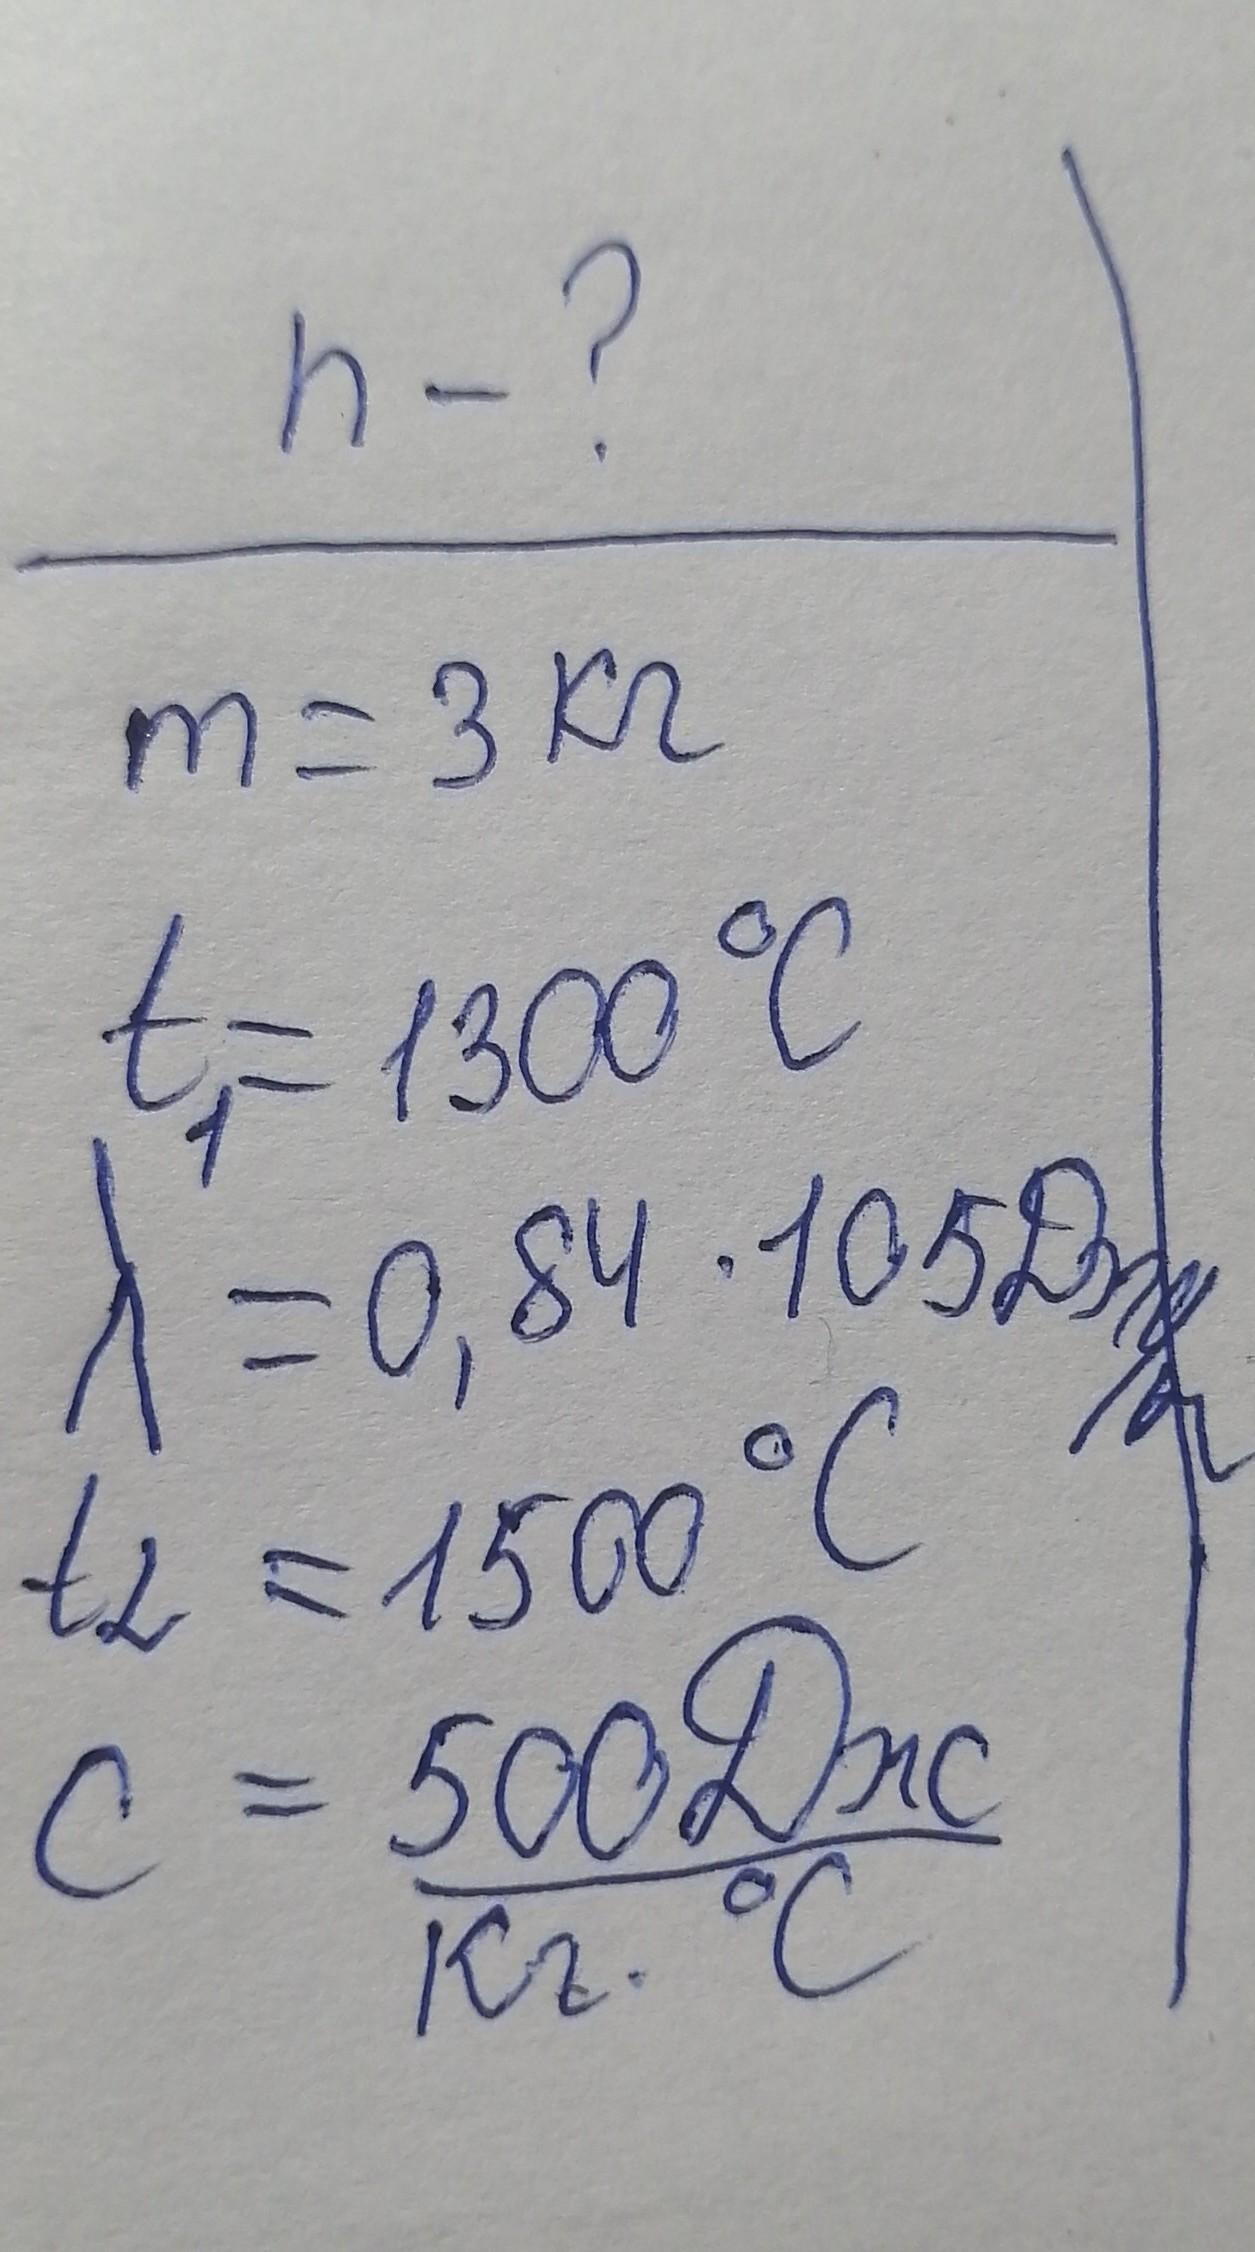 n - ?
m = 3 кг
t₁ = 1300 °C
λ = 0,84 · 105 Дж/кг
t₂ = 1500 °C
c = 500 Дж
кг. °C